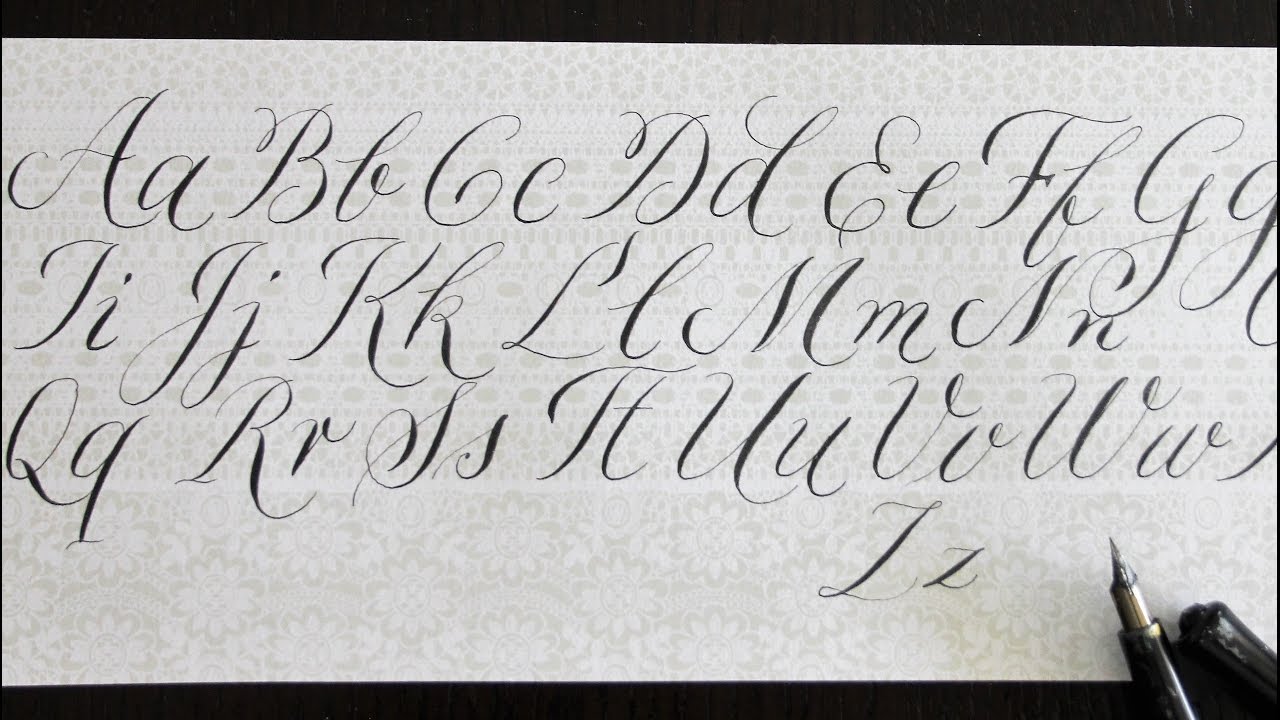 Aa Bb Cc Dd Ee Ff Gg
Ii Jj Kk Ll Mm Nn
Qq Rr Ss Tt Uu Vv Ww
Zz